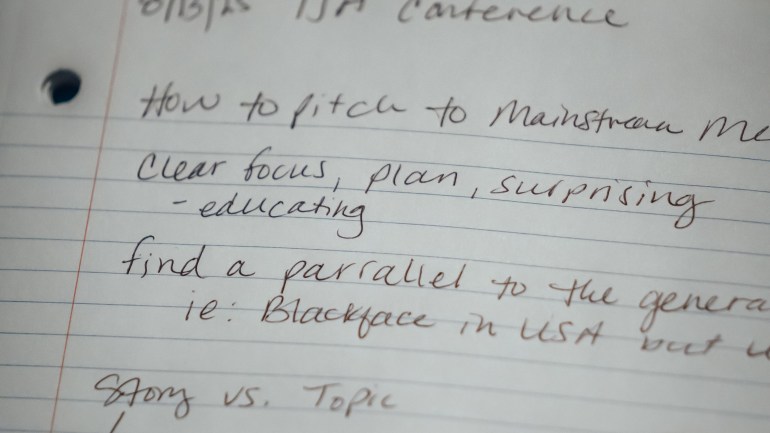 Conference
How to pitch to Mainstream Me
Clear focus, plan, surprising
- educating
find a parrallel to the genera
ie: Blackface in USA but
Story vs. Topic